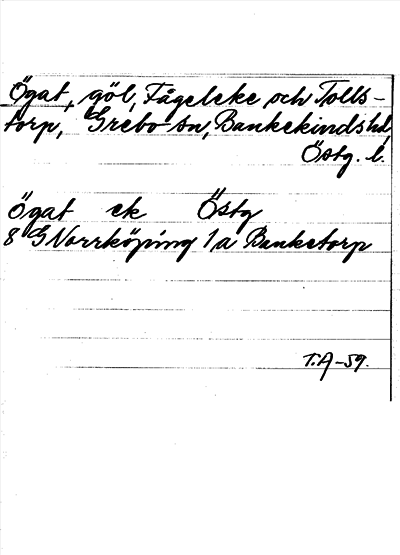 Ögat, göl, Fågeleke och Tolls-
torp, Grebo sn, Bankekinds hd,
Östg. l.
Ögat ek Östg
8 G Norrköping 1 a Banketorp
T.A-59.